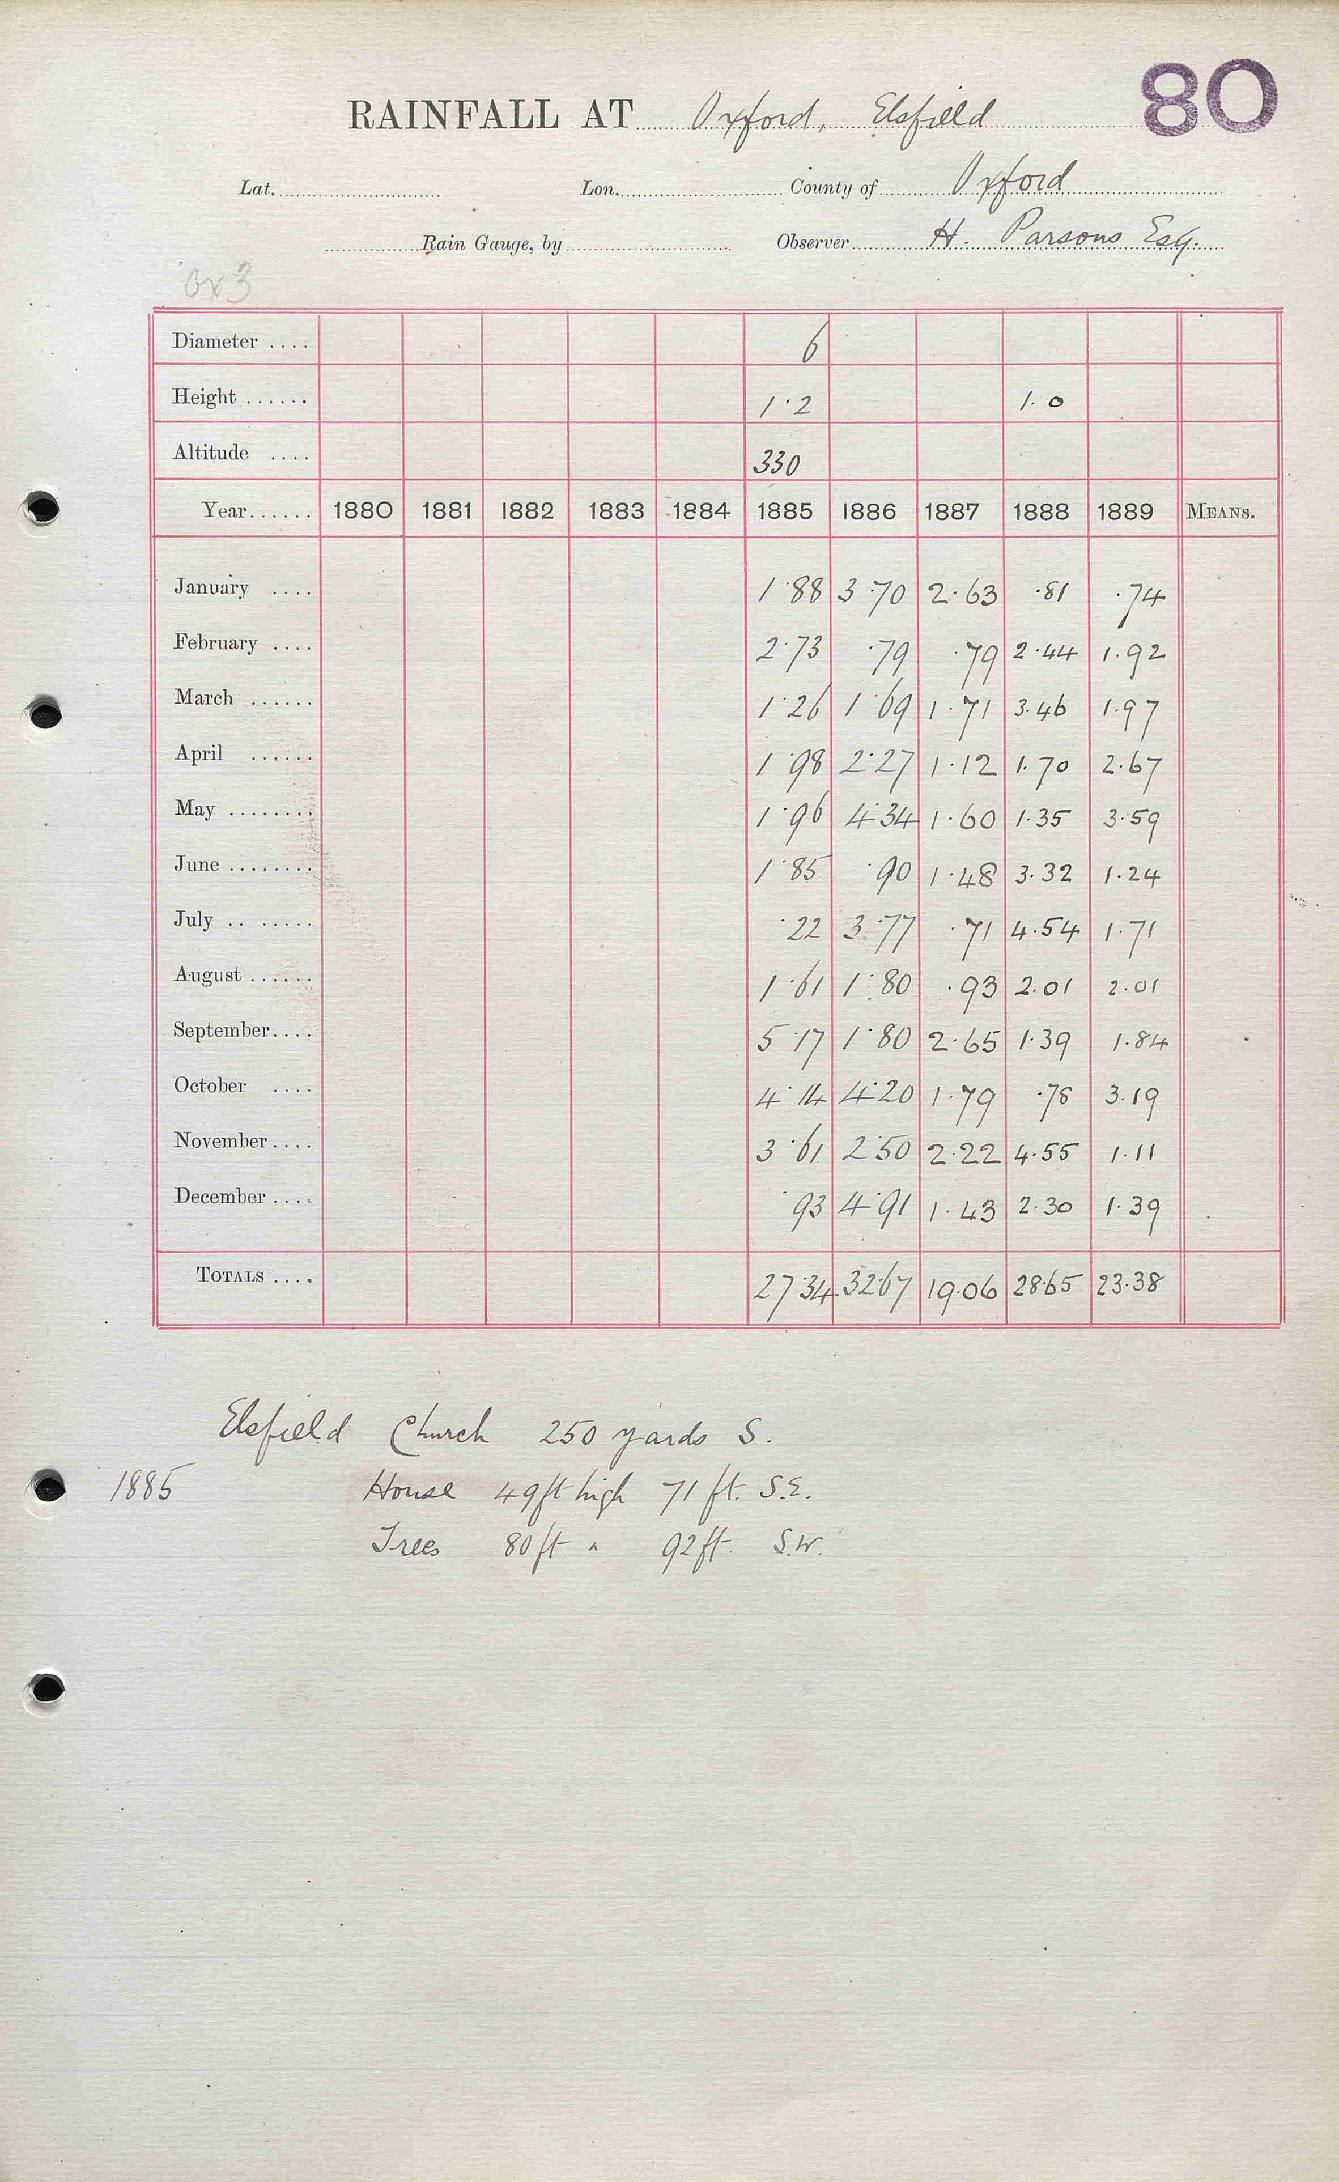 80
RAINFALL AT Oxford, Elsfield
Lat. Lon. County of Oxford
Rain Gauge, by Observer H. Parsons Esq.
Ox3
Diameter .... 6
Height ...... 1·2 1·0
Altitude .... 330
Year...... 1880 1881 1882 1883 1884 1885 1886 1887 1888 1889 MEANS.
January .... 1·88 3·70 2·63 ·81 ·74
February .... 2·73 ·79 ·79 2·44 1·92
March ...... 1·26 1·69 1·71 3·46 1·97
April ...... 1·98 2·27 1·12 1·70 2·67
May ........ 1·96 4·34 1·60 1·35 3·59
June ........ 1·85 ·90 1·48 3·32 1·24
July .. ...... ·22 3·77 ·71 4·54 1·71
August ...... 1·61 1·80 ·93 2·01 2·01
September.... 5·17 1·80 2·65 1·39 1·84
October .... 4·14 4·20 1·79 ·78 3·19
November.... 3·61 2·50 2·22 4·55 1·11
December .... ·93 4·91 1·43 2·30 1·39
TOTALS .... 27·34 32·67 19·06 28·65 23·38
Elsfield Church 250 yards S.
1885 House 49ft high 71 ft. S.E.
Trees 80ft " 92ft. S.W.